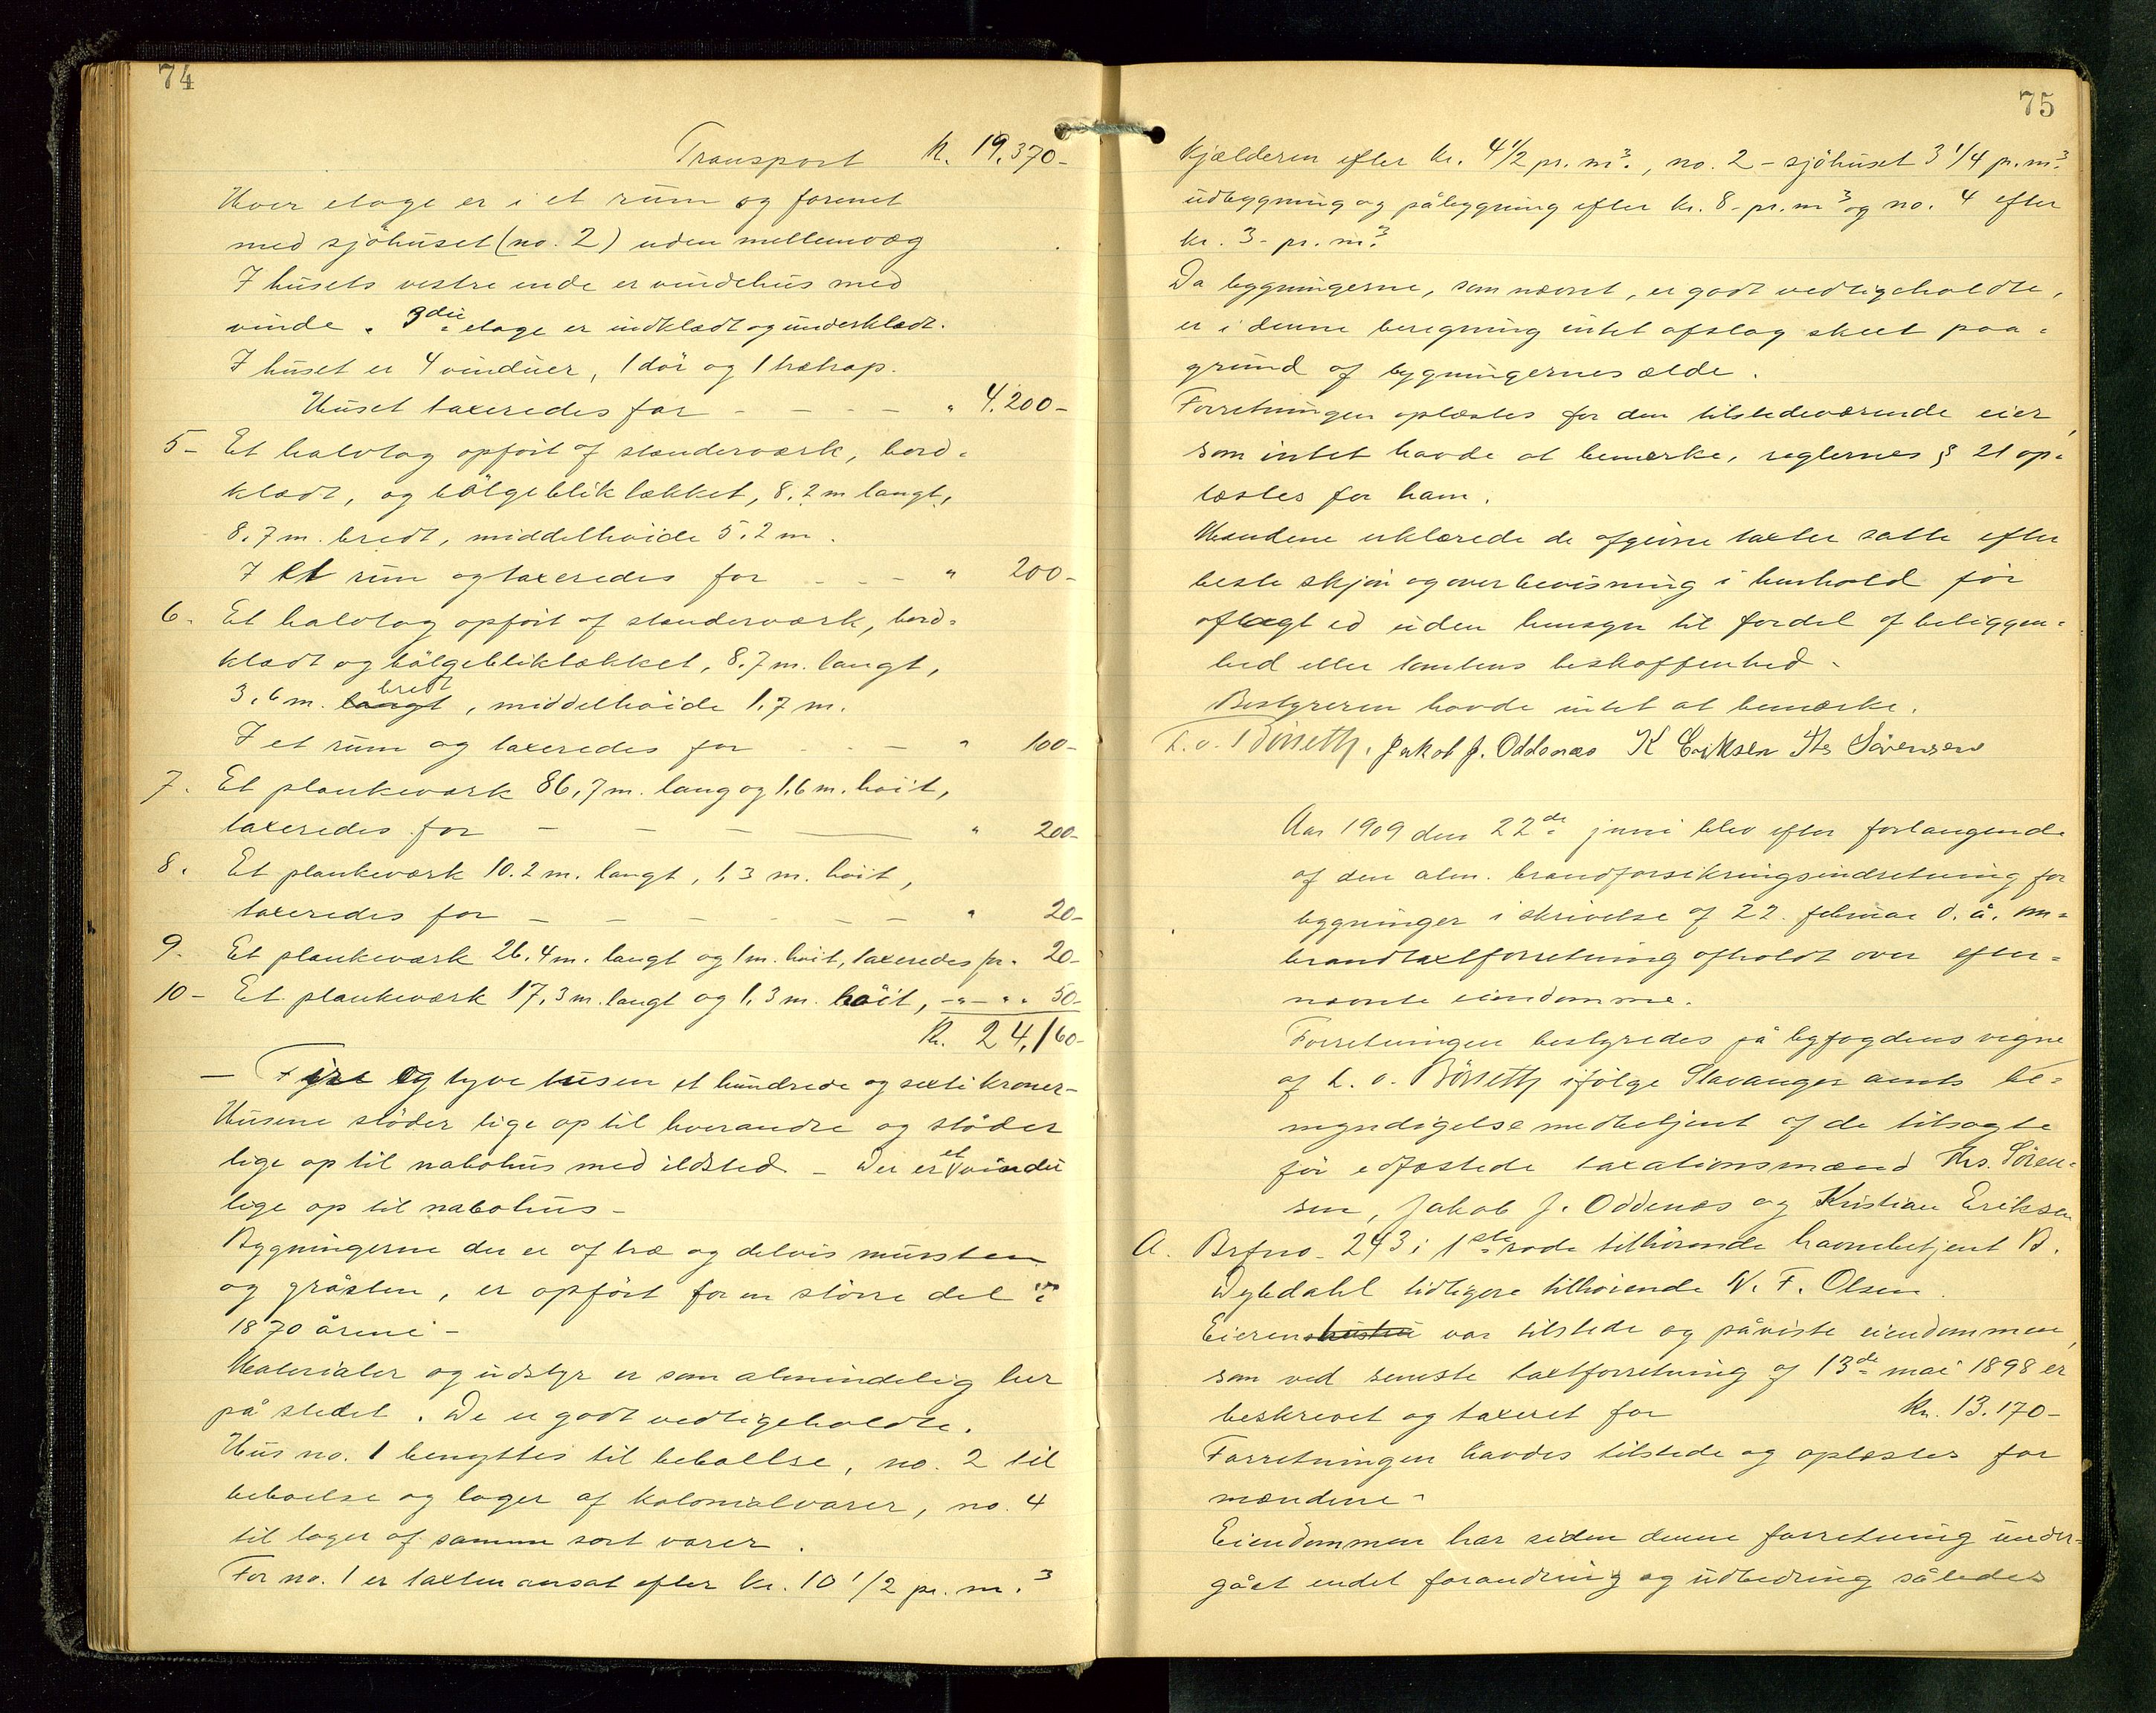 74
Transport Kr. 19,370-
Hver etage er i et rum og forenet
med sjöhuset (no. 2) uden mellemvæg
I husets vestre ende er vindehus med
vinde. 3die etage er indklædt og underklædt.
I huset er 4 vinduer, 1 dör og 1 trætrap.
Huset taxeredes for - - - - " 4.200-
5- Et halvtag opfört af standerværk, bord-
klædt, og bölgebliktækket, 8.2 m langt,
8,7 m. bredt, middelhöide 5.2 m.
I et rum og taxeredes for - - - " 200-
6. Et halvtag opfört af standerværk, bord-
klædt og bölgebliktækket, 8.7 m. langt,
3,6 m. langt bredt, middelhöide 1,7 m.
I et rum og taxeredes for - - - " 100-
7. Et plankeværk 86,7 m. lang og 1,6 m. höit,
taxeredes for - - - — " 200-
8. Et plankeværk 10.2 m. langt, 1,3 m. höit,
taxeredes for - - - - - - " 20-
9. Et plankeværk 26.4 m. langt og 1 m. höit, taxeredes for " 20-
10- Et plankeværk 17,3 m. langt og 1,3 m. höit, -"- " " 50-
Kr. 24,160-
- Fire og tyve tusen et hundrede og sexti kroner-
Husene stöder lige op til hverandre og stöder
lige op til nabohus med ildsted - Der er et vindu
lige op til nabohus-
Bygningerne der er af træ og delvis mursten
og gråsten, er opfört for en större del i
1870 årene-
Materialer og udstyr er som almindelig her
på stedet. De er godt vedligeholdte.
Hus no. 1 benyttes til beboelse, no. 2 til
beboelse og lager af kolonialvarer, no. 4
til lager af samme sort varer.
For no. 1 er taxten ansat efter kr. 10 1/2 pr. m.3
75
Kjælderen efter kr. 4 1/2 pr. m3., no. 2 - sjöhuset 3 1/4 pr. m3.
udbygning og påbygning efter kr. 8- pr. m3 og no. 4 efter
kr. 3- pr. m3.
Da bygningerne, som nævnt, er godt vedligeholdte,
er i denne beregning intet afslag skeet paa-
grund af bygningernes ælde.
Forretningen oplæstes for den tilstedeværende eier,
som intet havde at bemærke, reglernes § 21 op-
læstes for ham.
Mændene erklærede de afgivne taxter satte efter
beste skjön og overbevisning i henhold för
aflagt ed uden hensyn til fordel af beliggen-
hed eller tomtens beskaffenhed.
Bestyreren havde intet at bemærke.
L. o. Börseth. Jakob J. Oddenæs K Eriksen Ths Sörensen
Aar 1909 den 22de juni blev efter forlangende
af den alm. brandforsikringsindretning for
bygninger i skrivelse af 22. februar d. å. om-
brandtaxtforretning afholdt over efter-
nævnte eiendomme.
Forretningen bestyredes på byfogdens vegne
af L. o. Börseth ifölge Stavanger amts be-
myndigelse medbetjent af de tilsagte
för edfæstede taxationsmænd Ths. Sören-
sen, Jakob J. Oddenæs og Kristian Eriksen
A. Brfno. 243 i 1ste rode tilhörende havnebetjent B.
Dybdahl tidligere tilhörende N. F. Olsen.
Eieren hustru var tilstede og påviste eiendommen,
som ved seneste taxtforretning af 13de mai 1898 er
beskrevet og taxeret for Kr. 13.170-
Forretningen havdes tilstede og oplæstes for
mændene-
Eiendommen har siden denne forretning under-
gået endel forandring og udbedring således